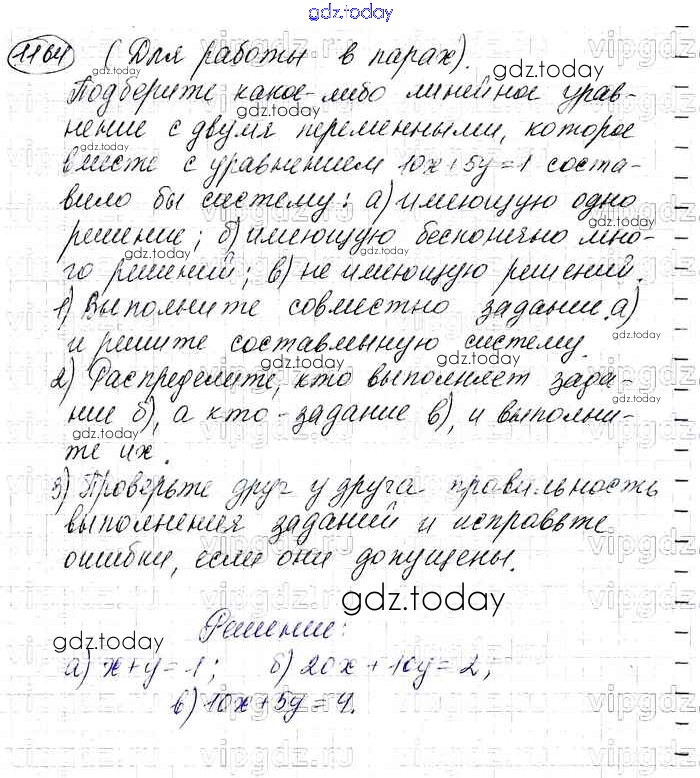 gdz.today
1164 (Для работы в парах).
Подберите какое-либо линейное урав-
нение с двумя переменными, которое
вместе с уравнением 10x+5y=1 соста-
вило бы систему: а) имеющую одно
решение; б) имеющую бесконечно мно-
го решений; в) не имеющую решений.
1) Выполните совместно задание а)
и решите составленную систему.
2) Распределите, кто выполняет зада-
ние б), а кто - задание в), и выполни-
те их.
3) Проверьте друг у друга правильность
выполнения заданий и исправьте
ошибки, если они допущены.
gdz.today
Решение:
а) x+y=-1; б) 20x+10y=2;
в) 10x+5y=4.